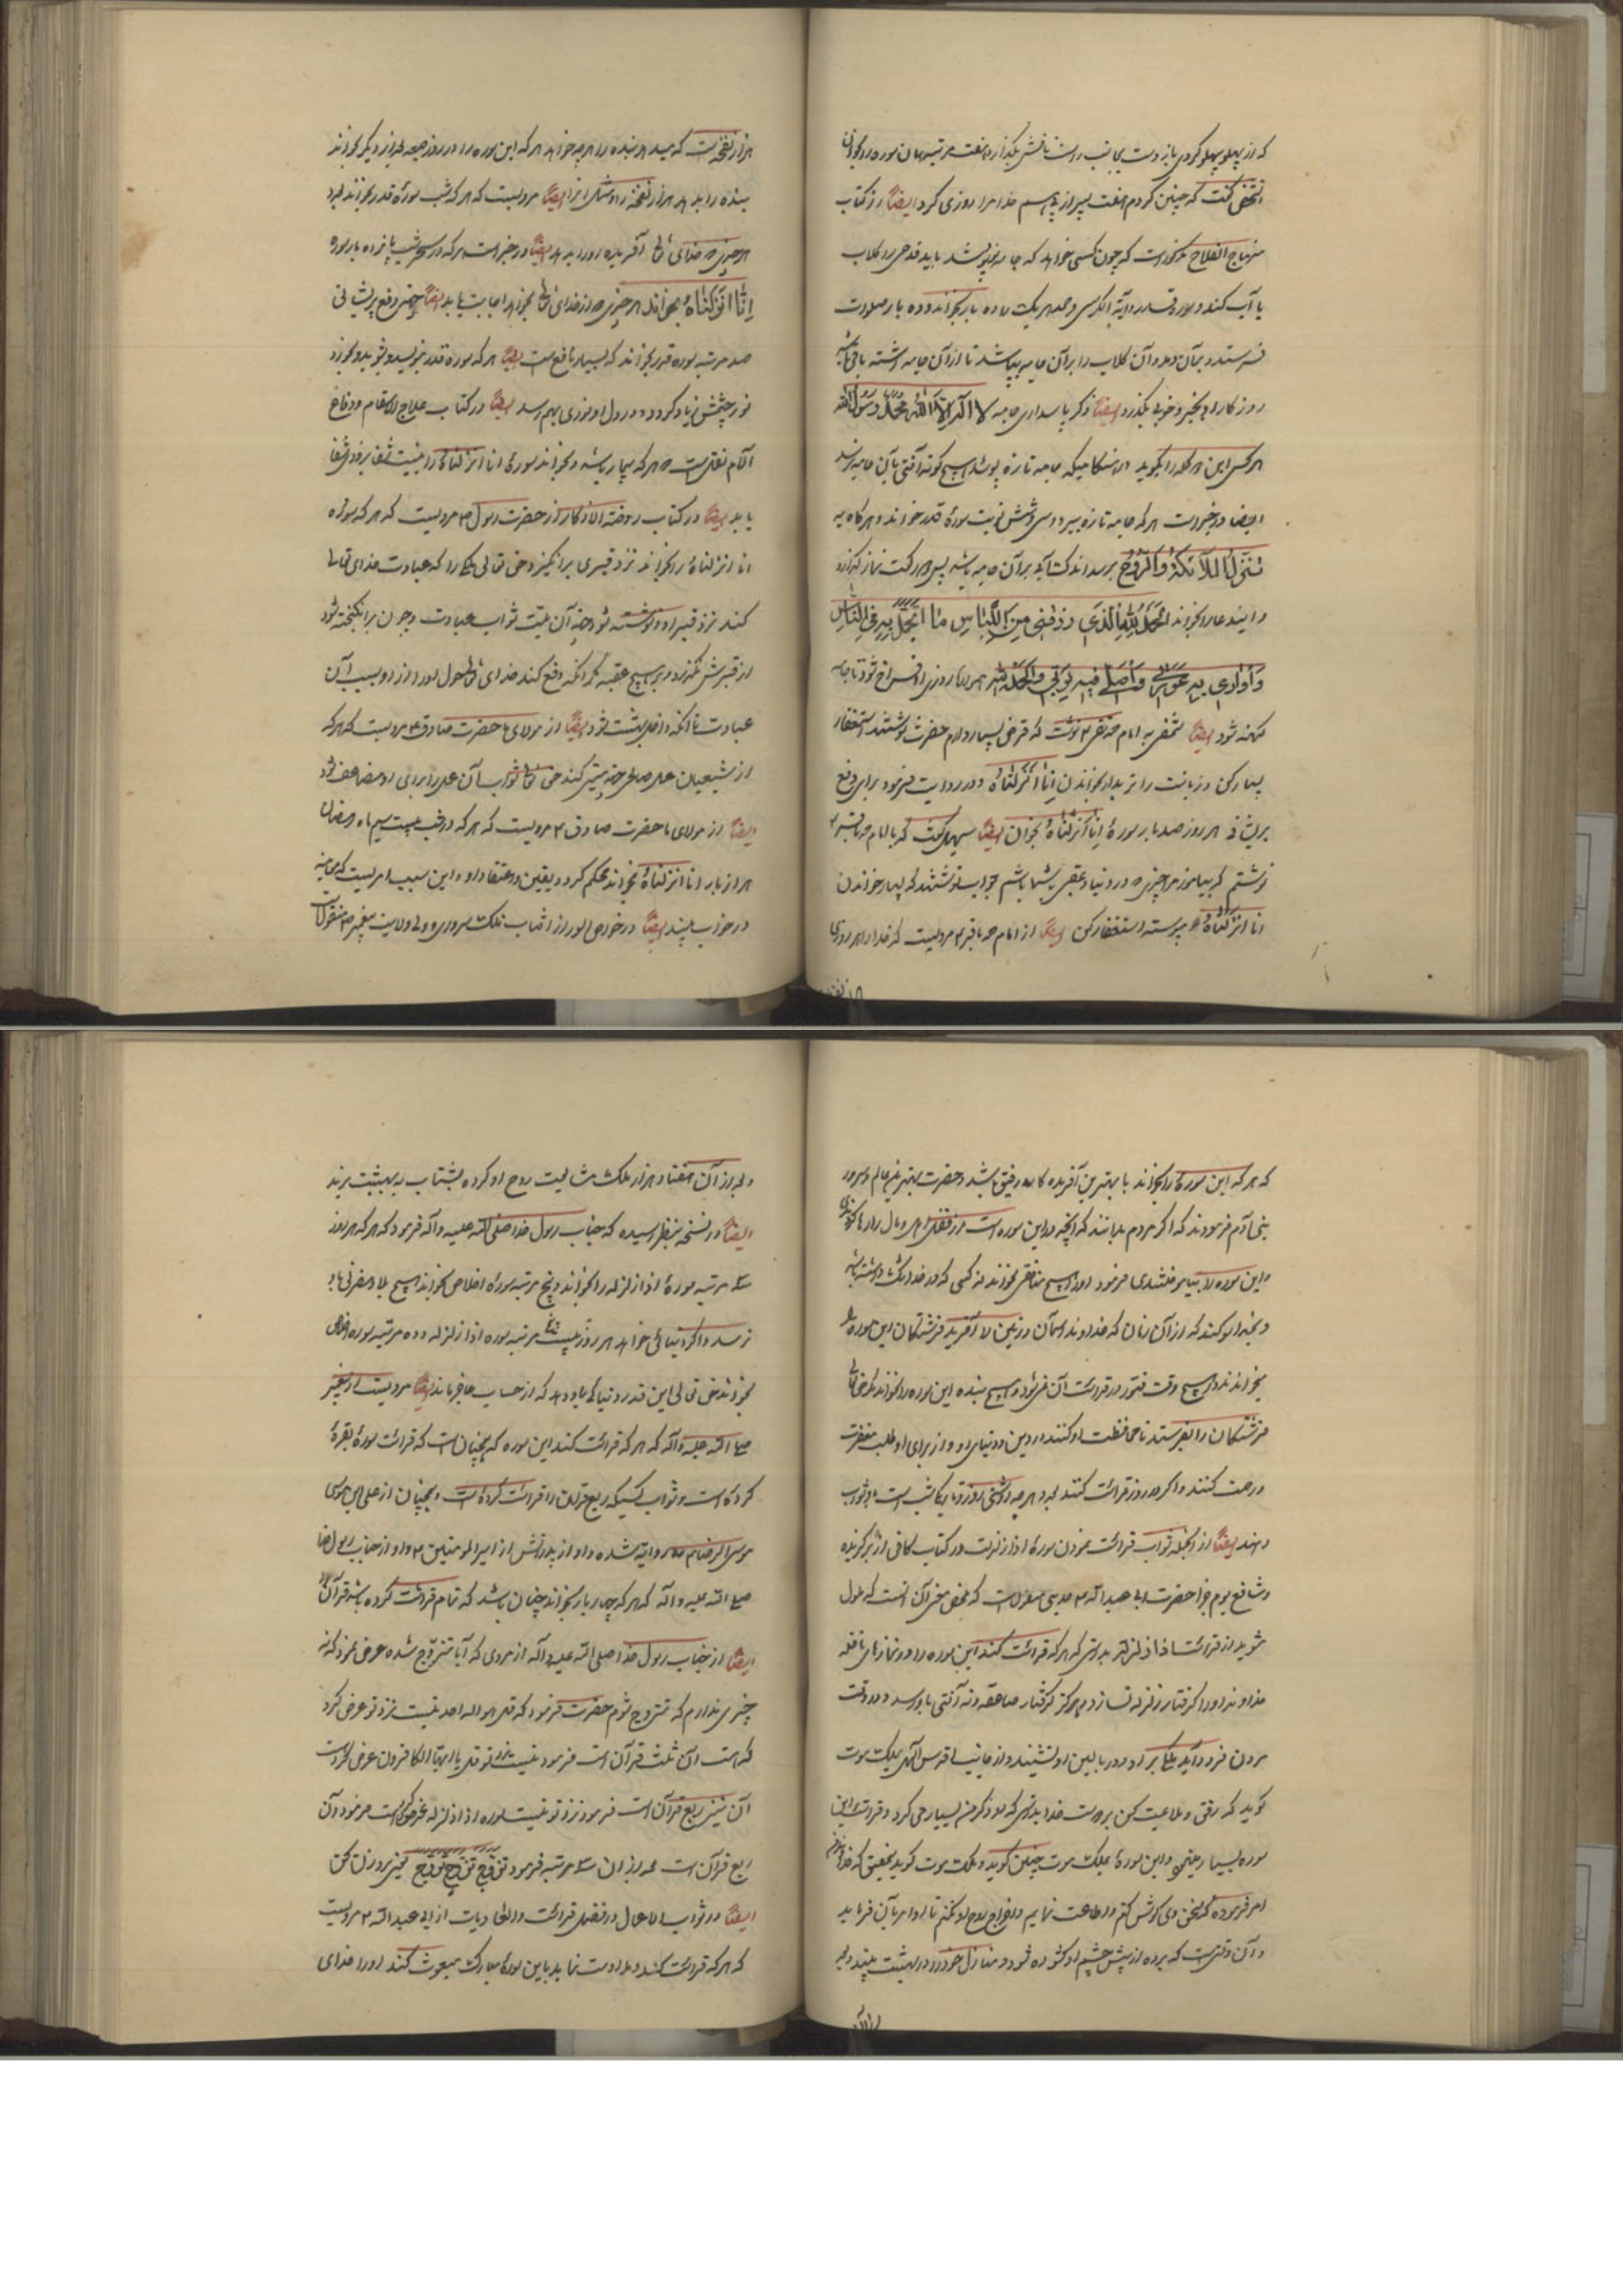 که از پهلو بپهلو کردی باز دست بجانب راست نافش بگذار و هفت مرتبه همان سوره را بخوان
انشخص گفت که چنین کردم هفت پسر از پی هم خدا مرا روزی کرد ایضاً در کتاب
منهاج الفلاح مذکور است که چون کسی خواهد که جامه نو بپوشد باید قدحی پر گلاب
یا آب کند و سوره قدر و آیة الکرسی و حمد هر یک را ده بار بخواند و ده بار صلوات
فرستد و بر آن دمد و آن گلاب را بر آن جامه بپاشد تا از آن جامه رشته باقی باشد
روزگار او بخیر و خوبی بگذرد ایضاً ذکر پاسداری جامه لا اله الا الله محمد رسول الله
هر کس این کلمه را بگوید در هنگامیکه جامه تازه پوشد هیچ گونه آفتی بآن جامه نرسد
ایضا در خبر است هر که جامه تازه ببرد و سی و شش نوبت سورۀ قدر خواند و هر گاه به
تنزل الملآئکة والروح برسد اندک آبی بر آن جامه باشد پس دو رکعت نماز گذارد
و ایندعا را بخواند الحمد لله الذی رزقنی من اللباس ما اتجمل به فی الناس
و اواری به عورتی و اصلی فیه لربی والحمد لله همواره روزی او فراخ شود تا جامه
کهنه شود ایضاً شخصی به امام محمد تقی ع نوشت که قرض بسیار دارم حضرت نوشتند استغفار
بسیار کن و زبانت را تر بدار بخواندن انا انزلناه و در روایت فرمود برای دفع
پریشانی هر روز صد بار سورۀ انا انزلناه بخوان ایضاً سهل گفت که بامام محمد باقر ع
نوشتم که بیاموز مرا چیزی که در دنیا و عقبی با شما باشم جواب نوشتند که بسیار خواندن
انا انزلناه و پیوسته استغفار کن ایضاً از امام محمد باقر ع مرویست که خدا را هر روزی
هزار نفخه است که میدهد بنده را هر چه خواهد هر که این سوره را در روز جمعه هزار و یکبار بخواند
بنده را بدهد هزار نفخه را و مثل انرا ایضاً مرویست که هر که شب سورۀ قدر بخواند نبرد
هر چیزی که خدای تعالی آفریده او را بدهد ایضاً در خبر است هر که در سحر شب پانزده بار سوره
انا انزلناه بخواند هر چیزی که از خدای تعالی بخواهد اجابت یابد ایضاً جهت دفع پریشانی
صد مرتبه سوره قدر بخواند که بسیار نافع است ایضاً هر که سوره قدر بنویسد و بشوید و بخورد
نور چشمش زیاد گردد و در دل او نوری بهم رسد ایضاً در کتاب علاج الاسقام و دفاع
الآلام نقلست که هر که بیمار باشد و بخواند سورۀ انا انزلناه را به نیت شفا بزودی شفا
یابد ایضاً در کتاب روضة الاذکار از حضرت رسول ص مرویست که هر که سوره
انا انزلناه را بخواند نزد قبری برانگیزد حق تعالی ملکی را که عبادت خدای تعالی
کند نزد قبر او و نوشته شود جهة آن میت ثواب عبادت و چون برانگیخته شود
از قبرش نگذرد بر هیچ عقبه مگر آنکه دفع کند خدای تعالی هول او را از او بسبب آن
عبادت تا آنکه داخل بهشت شود ایضاً از مولای ما حضرت صادق ع مرویست که هر که
از شیعیان عمل صالحی جهة میتی کند حق تعالی ثواب آن عمل را برای او مضاعف گرداند
ایضاً از مولای ما حضرت صادق ع مرویست که هر که در شب بیست سیم ماه رمضان
هزار بار انا انزلناه بخواند محکم گردد یقین و اعتقاد او و این سبب امریست که معاینه
در خواب بیند ایضاً در خواص السور از آفتاب فلک سروری و ولایت پیغمبر ص منقولست
که هر که این سوره را بخواند با بهترین آفریده گار رفیق باشد و حضرت بهترین عالم و سرور
بنی آدم فرمودند که اگر مردم بدانند که آنچه در این سوره است از فضل اهل و مال را رها کنند
و این سوره را بیاموختندی فرمود او را هیچ منافق نخواند نه کسی که در خدا شک داشته باشد
و بخدا سوگند که از آن زمان که خداوند آسمان و زمین را آفرید فرشتگان این سوره را
بخوانند و هیچ وقت فتور در قرائت آن نمیشود و هیچ بنده این سوره را نخواند مگر حقتعالی
فرشتگان را بفرستد تا محافظت او کنند در دین و دنیای او و از برای او طلب مغفرت
و رحمت کنند و اگر در روز قرائت کنند به هر چه روشنی روز و تاریکی شب است باو ثواب
دهند ایضاً از انجمله ثواب قرائت نمودن سورۀ اذا زلزلت در کتاب کافی از برگزیده
و شافع یوم جزا حضرت ابی عبد الله ع حدیثی منقولست که محض معنی آن انست که ملول
مشوید از قرائت اذا زلزلت بدرستی که هر که قرائت کند این سوره را در نمازهای نافله
خداوند او را گرفتار زلزله نسازد و هرگز گرفتار صاعقه و نه آفتی باو رسد و در وقت
مردن فرود آید ملکی بر او و در بالین او نشیند و از جانب اقدس الهی بملک موت
گوید که رفق و ملایمت کن بدوست خدا بدرستی که او ذکر من بسیار می کرد و قرائت این
سوره بسیار مینمود و این سورۀ بملک موت چنین گوید و ملک موت گوید بتحقیق که خداوند
امر فرموده که سخن وی گوش کنم و اطاعت نمایم و اخراج روح او نکنم تا او امر بآن فرماید
و آن وقتی است که پرده از پیش چشم او گشوده شود و منازل خود را در بهشت بیند و به
و بعد از آن هفتاد هزار ملک مشایعت روح او کرده بشتاب به بهشت برند
ایضاً در نسخه بنظر رسیده که جناب رسول خدا صلی الله علیه و آله فرمود که هر که هر روز
سه مرتبه سورۀ اذا زلزله را بخواند و پنج مرتبه سورۀ اخلاص بخواند هیچ بلا و مضرتی باو
نرسد و اگر دنیائی خواهد هر روز بیست مرتبه سوره اذا زلزله و ده مرتبه سوره اخلاص
بخواند حق تعالی این قدر دنیا باو دهد که از حساب عاجز ماند ایضاً مرویست از پیغمبر
صلی الله علیه و آله که هر که قرائت کند این سوره که همچنان است که قرائت سورۀ بقره
کرده است و ثواب کسیکه ربع قرآن را قرائت کرده است و همچنان از علی ابن موسی
موسی الرضا علیه السلام روایة شده و او از پدرانش از امیرالمومنین ع و او از جناب رسول خدا
صلی الله علیه و آله که هر که چهار بار بخواند چنان باشد که تمام قرائت کرده باشد قرآن را
ایضاً از جناب رسول خدا صلی الله علیه و آله از مردی که آیا تزویج شده عرض نمود که نه
چیزی ندارم که تزویج شوم حضرت فرمود که قل هو الله احد نیست نزد تو عرض کرد
که هست آن ثلث قرآن است فرمود نیست نزد تو قل یا ایها الکافرون عرض کرد هست
آن نیز ربع قرآن است فرمود نزد تو نیست سوره اذا زلزله عرض کرد هست فرمود آن
ربع قرآن است بعد از آن سه مرتبه فرمود تزوج تزوج تزوج یعنی برو زن کن
ایضاً در ثواب الاعمال در فضل قرائت والعادیات از ابی عبد الله ع مرویست
که هر که قرائت کند و مداومت نماید باین سورۀ مبارک مبعوث کند او را خدای